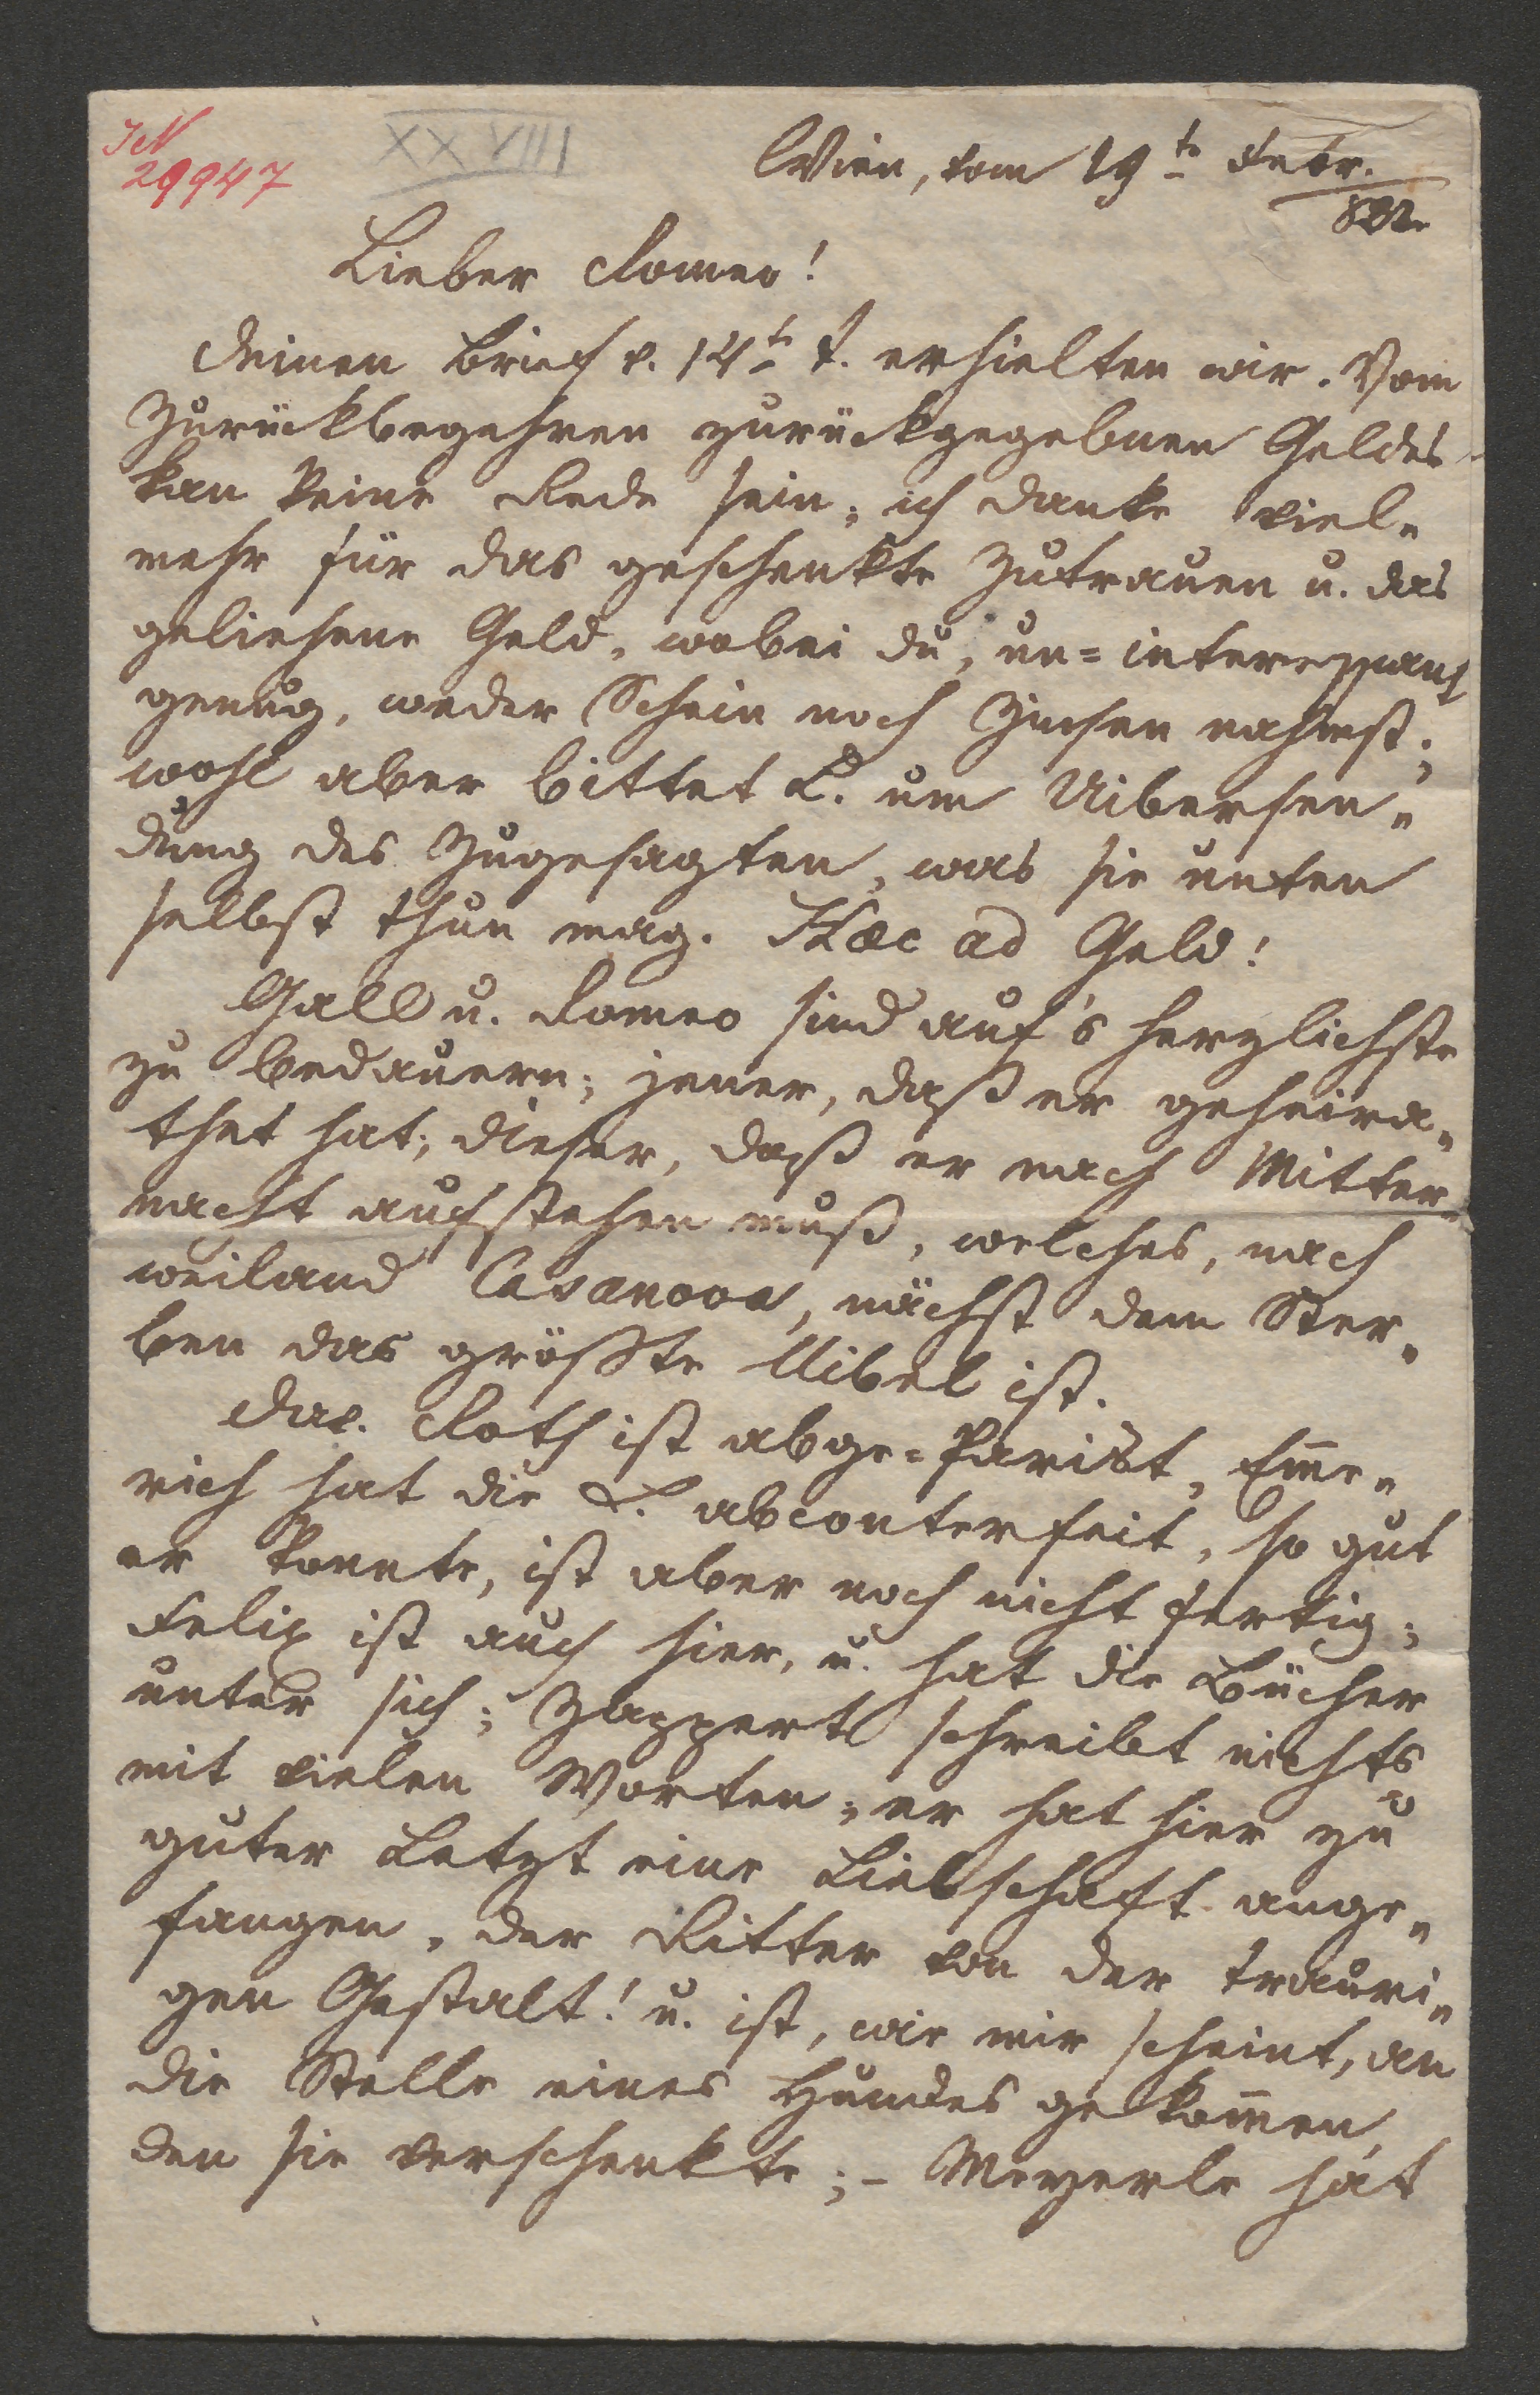 IN
29947
XXVIII
Wien, vom 19t Febr.
832.
Lieber Romeo!
Deinen Brief v. 14t d. erhielten wir. Vom
Zurückbegehren zurückgegebnen Geldes
kan keine Rede sein; ich danke viel„
mehr für das geschenkte Zutrauen u. das
geliehene Geld, wobei du, un=interessant
genug, weder Schein noch Zinsen nahmst;
wohl aber bittet L. um Uibersen„
dung des Zugesagten, was sie unten
selbst thun mag. Haec ad Geld!
Gall u. Romeo sind auf's herzlichste
zu bedauern; jener, daß er geheira„
thet hat; dieser, daß er nach Mitter„
nacht aufstehen muß, welches, nach
weiland Casanova, nächst dem Ster„
ben das größte Uibel ist.
Dav. Roth ist abge=Parist, Em̅e„
rich hat die L. abconterfeit, so gut
er konnte, ist aber noch nicht fertig;
Felix ist auch hier, u. hat die Bücher
unter sich; Zappert schreibt nichts
mit vielen Worten; er hat hier zu
guter Letzt eine Liebschaft ange„
fangen, der Ritter von der trauri„
gen Gestalt! u. ist, wie mir scheint, an
die Stelle eines Hundes gekom̅en,
den sie verschenkte; – Meyerle hat